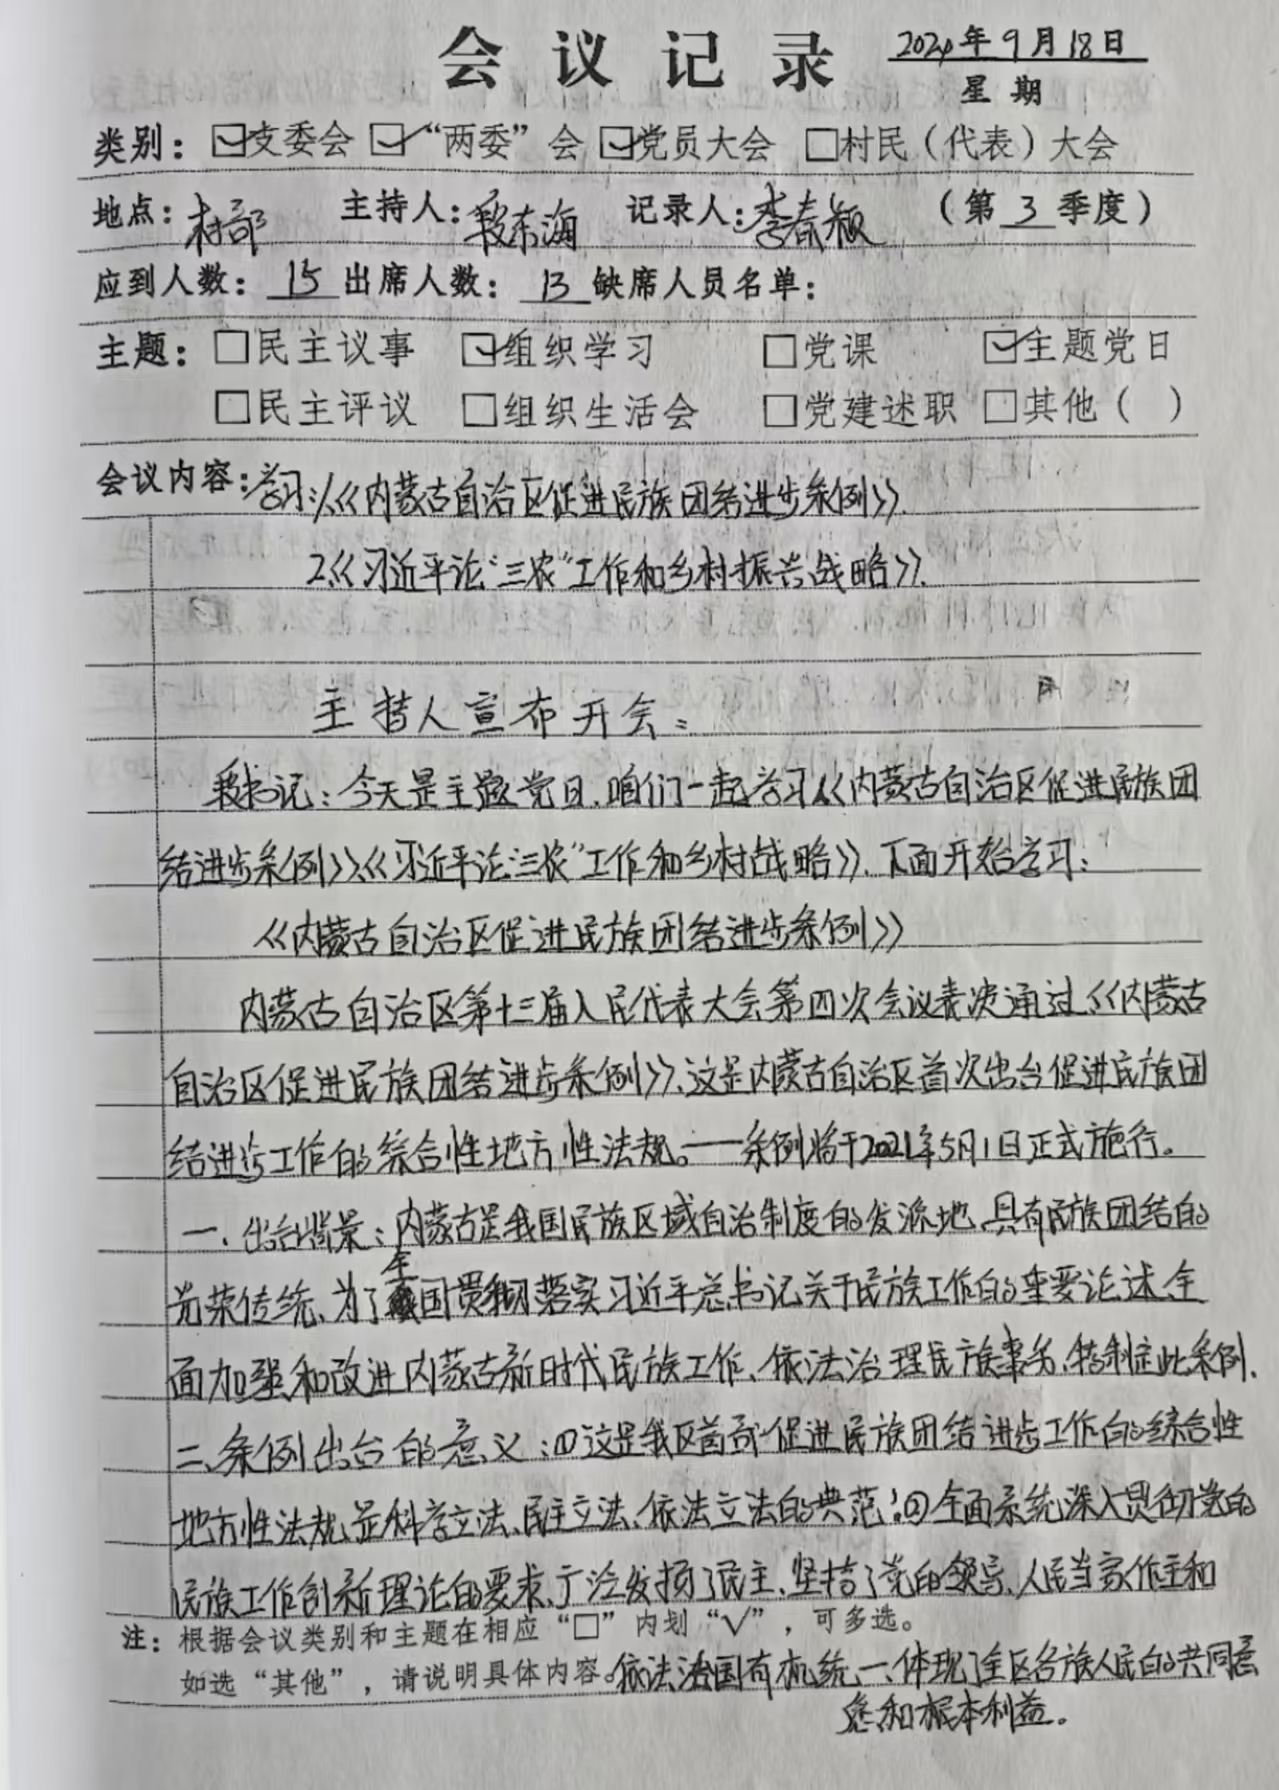 会议记录
2024年9月18日
星期
类别：☑支委会 ☑“两委”会 ☑党员大会 □村民（代表）大会
地点：村部 主持人：段东海 记录人：李春颖 （第3季度）
应到人数：15 出席人数：13 缺席人员名单：
主题：□民主议事 ☑组织学习 □党课 ☑主题党日
□民主评议 □组织生活会 □党建述职 □其他（ ）
会议内容：学习：1.《内蒙古自治区促进民族团结进步条例》.
2.《习近平论“三农”工作和乡村振兴战略》.
主持人宣布开会：
段书记：今天是主题党日，咱们一起学习《内蒙古自治区促进民族团
结进步条例》、《习近平论“三农”工作和乡村战略》、下面开始学习：
《内蒙古自治区促进民族团结进步条例》
内蒙古自治区第十三届人民代表大会第四次会议表决通过《内蒙古
自治区促进民族团结进步条例》，这是内蒙古自治区首次出台促进民族团
结进步工作的综合性地方性法规。——条例将于2021年5月1日正式施行。
一、出台背景：内蒙古是我国民族区域自治制度的发源地，具有民族团结的
光荣传统、为了全国贯彻落实习近平总书记关于民族工作的重要论述，全
面加强和改进内蒙古新时代民族工作、依法治理民族事务，特制定此条例.
二、条例出台的意义：①这是我区首部促进民族团结进步工作的综合性
地方性法规，是科学立法、民主立法、依法立法的典范；②全面系统深入贯彻党的
民族工作创新理论的要求，广泛发扬了民主，坚持了党的领导、人民当家作主和
注：根据会议类别和主题在相应“□”内划“√”，可多选。
如选“其他”，请说明具体内容。依法治国有机统一、体现了全区各族人民的共同意
愿和根本利益。